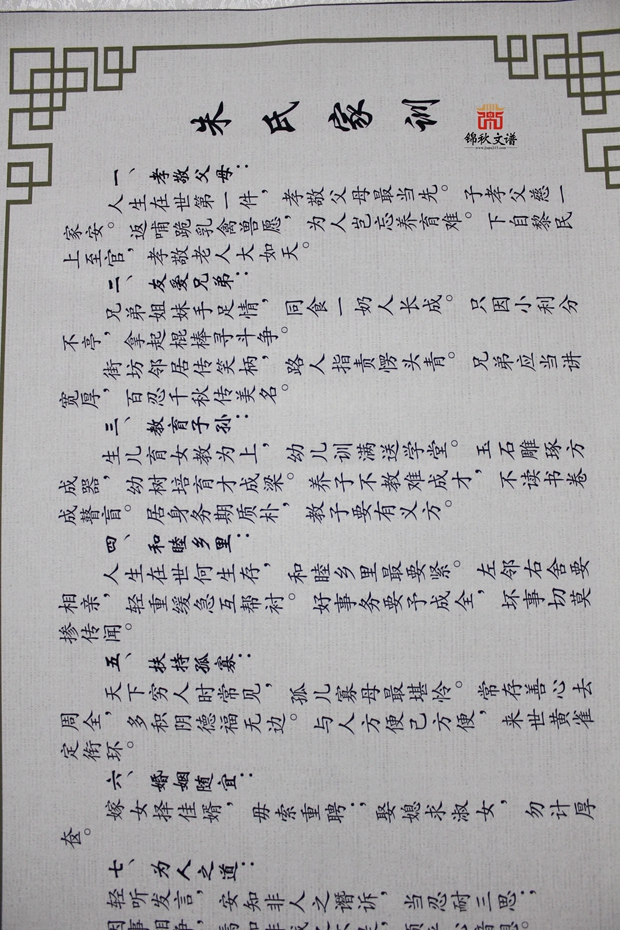 朱氏家训
锦秋文谱
一、孝敬父母：
人生在世第一件，孝敬父母最当先。子孝父慈一
家安。返哺跪乳禽兽愿，为人岂忘养育难。下自黎民
上至官，孝敬老人大如天。
二、友爱兄弟：
兄弟姐妹手足情，同食一奶人长成。只因小利分
不亭，拿起棍棒寻斗争。
街坊邻居传笑柄，路人指责愣头青。兄弟应当讲
宽厚，百忍千秋传美名。
三、教育子孙：
生儿育女教为上，幼儿训满送学堂。玉石雕琢方
成器，幼树培育才成梁。养子不教难成才，不读书卷
成瞽盲。居身务期质朴，教子要有义方。
四、和睦乡里：
人生在世何生存，和睦乡里最要紧。左邻右舍要
相亲，轻重缓急互帮衬。好事务要予成全，坏事切莫
掺传闻。
五、扶持孤寡：
天下穷人时常见，孤儿寡母最堪怜。常存善心去
周全，多积阴德福无边。与人方便己方便，来世黄雀
定衔环。
六、婚姻随宜：
嫁女择佳婿，毋索重聘；，娶媳求淑女，勿计厚
奁。
七、为人之道：
轻听发言，安知非人之谮诉，当忍耐三思；，